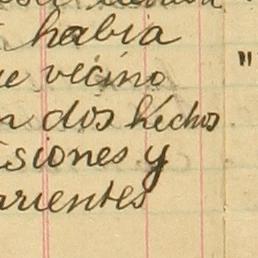 había
vecino
dos hechos
siones y
arientes
"